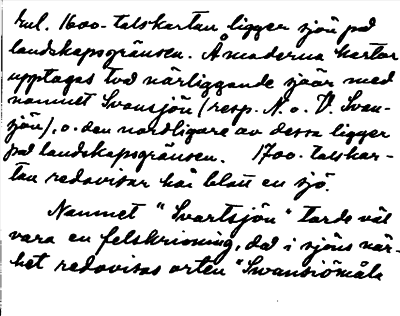 enl. 1600-talskartan ligger sjön på
landskapsgränsen. Å moderna kartor
upptages två närliggande sjöar med
namnet Svansjön (resp. N. o. V. Svan-
sjön), o. den nordligare av dessa ligger
på landskapsgränsen. 1700-talskar-
tan redovisar här blott en sjö.
Namnet "Svartsjön" torde väl
vara en felskrivning, då i sjöns när-
het redovisas orten "Swansiömåla